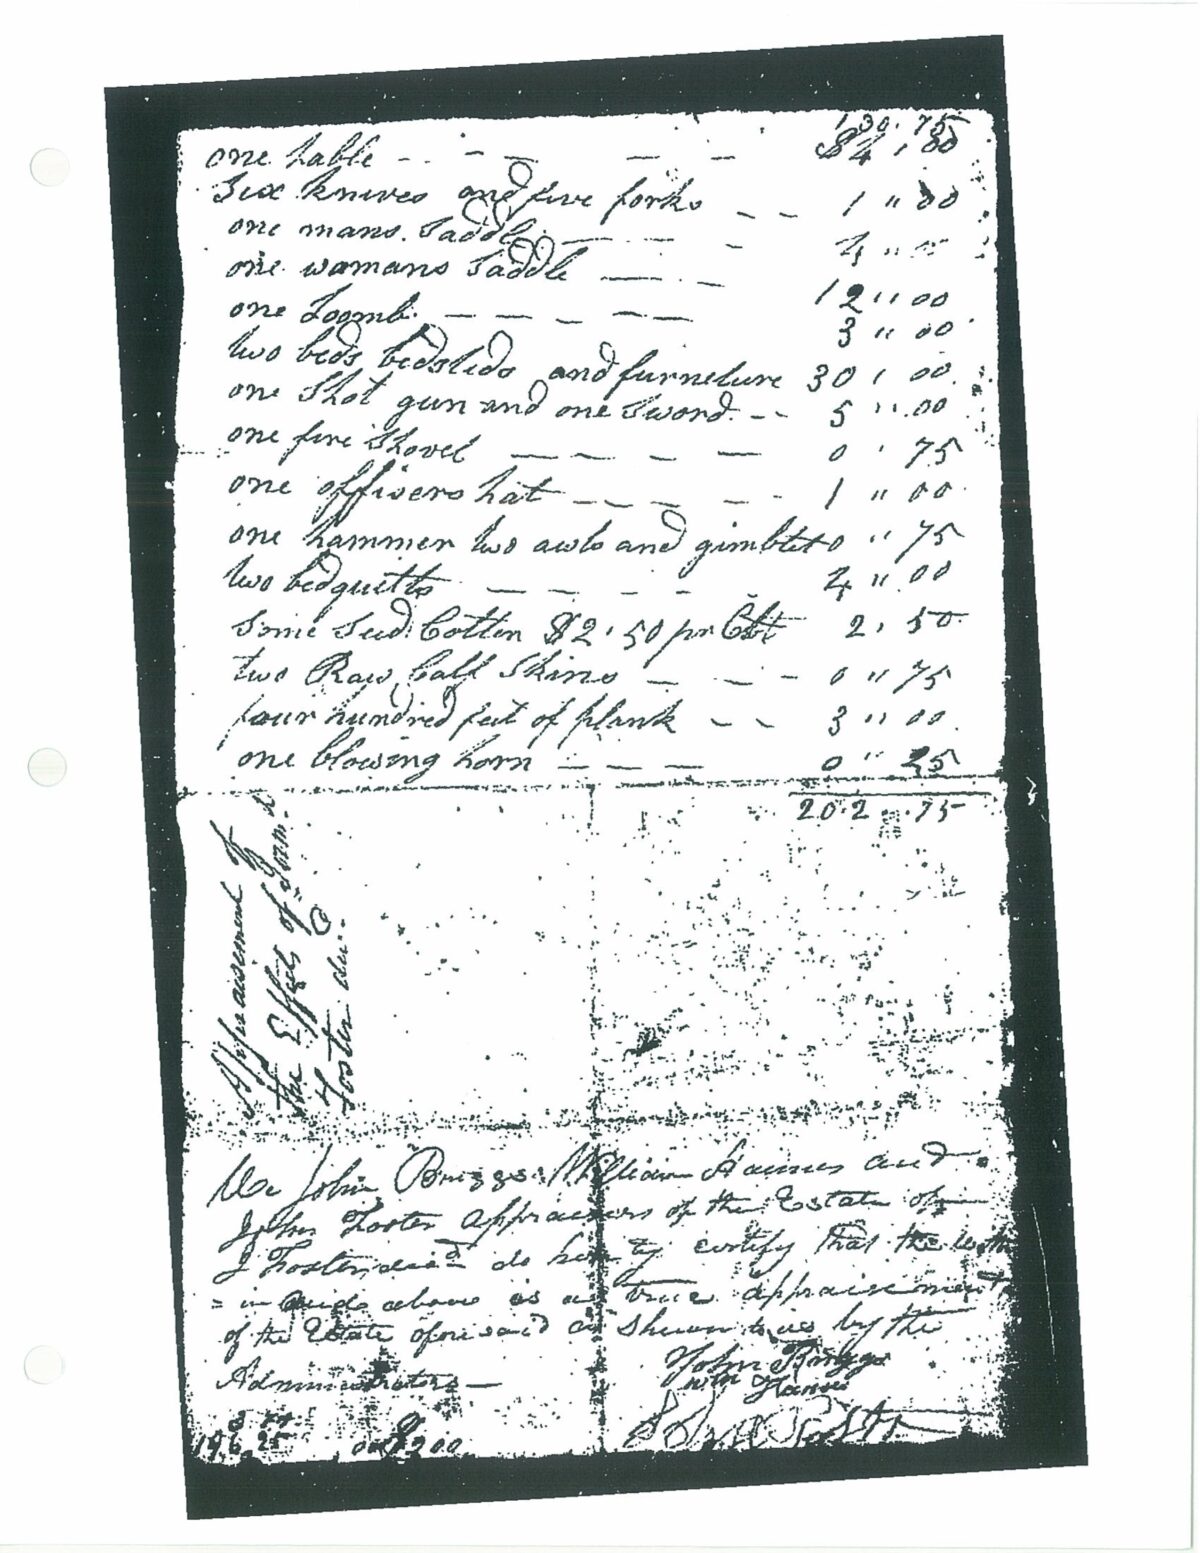 130.75
one table -- -- -- -- -- $4, 00
Six knives and five forks -- -- 1 " 00
one mans. Saddle -- -- -- 4 " 00
one womans Saddle -- -- -- 12 " 00
one Loomb. -- -- -- -- -- 3 " 00
two beds bedsteds and furneture 30, 00
one Shot gun and one Sword. -- -- 5 " 00
one fire Shovel -- -- -- -- -- 0 , 75
one offisers hat -- -- -- -- -- 1 " 00
one hammer two awls and gimblet 0 " 75
two bedquilts -- -- -- -- -- 4 " 00
Some Seed Cotton $2.50 pr Cbt 2, 50
two Raw Calf Skins -- -- -- -- 0 " 75
four hundred feet of plank -- -- 3 " 00
one blowing horn -- -- -- 0 " 25
202 " 75
Appraisement of
the Effects of
Foster dec.
We John Briggs William Hames and
John Foster Appraisers of the Estate of
J Foster decd do hereby certify that the
above is a true appraisement
of the Estate aforesaid as shewn to us by the
Administrators --
John Briggs
Wm Hames
John Foster
196.25 $200